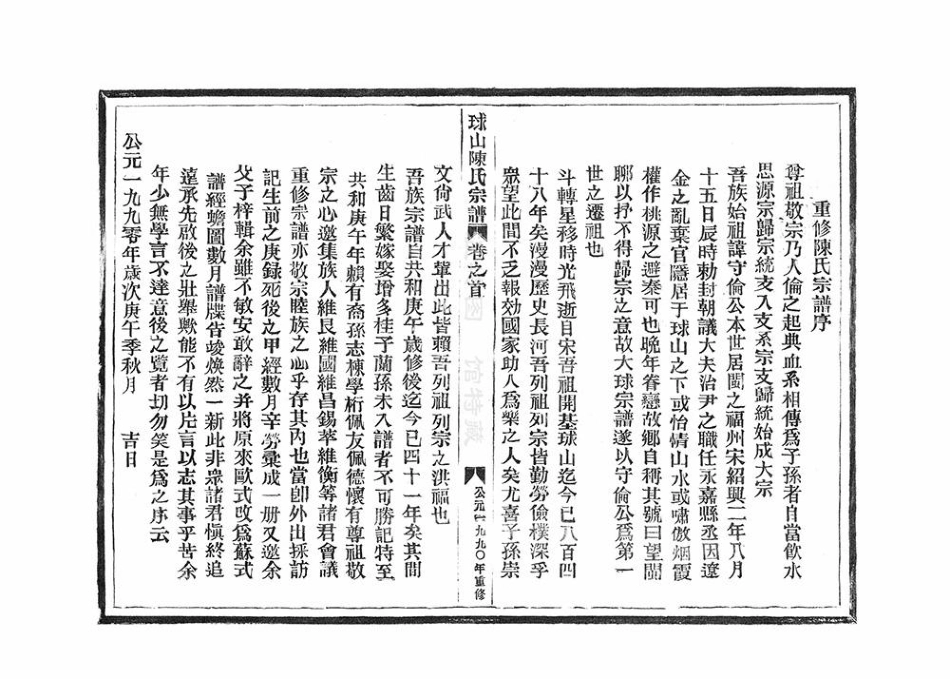 重修陳氏宗譜序
尊祖敬宗乃人倫之起典血系相傳爲子孫者自當飲水
思源宗歸宗統支入支系宗支歸統始成大宗
吾族始祖諱守倫公本世居閩之福州宋紹興二年八月
十五日辰時勅封朝議大夫治尹之職任永嘉縣丞因遼
金之亂棄官隱居于球山之下或怡情山水或嘯傲烟霞
權作桃源之避秦可也晚年眷戀故鄉自稱其號曰望閩
聊以抒不得歸宗之意故大球宗譜遂以守倫公爲第一
世之遷祖也
斗轉星移時光飛逝自宋吾祖開基球山迄今已八百四
十八年矣漫漫歷史長河吾列祖列宗皆勤勞儉樸深乎
眾望此間不乏報効國家助人爲樂之人矣尤喜子孫崇
球山陳氏宗譜 卷之首 公元一九九〇年重修
文尙武人才輩出此皆賴吾列祖列宗之洪福也
吾族宗譜自共和庚午歲修後迄今已四十一年矣其間
生齒日繁嫁娶增多桂子蘭孫未入譜者不可勝記特至
共和庚午年賴有裔孫志棟學桁佩友佩德懷有尊祖敬
宗之心邀集族人維艮維國維昌錫苹維衡等諸君會議
重修宗譜亦敬宗睦族之心乎存其內也當卽外出採訪
記生前之庚録死後之甲經數月辛勞彙成一册又邀余
父子梓輯余雖不敏安敢辭之并將原來歐式改爲蘇式
譜經蟾圖數月譜牒皆竣煥然一新此非衆諸君愼終追
遠承先啟後之壯舉歟能不有以片言以志其事乎苦余
年少無學言不達意後之覽者切勿笑是爲之序云
公元一九九零年歲次庚午季秋月 吉日